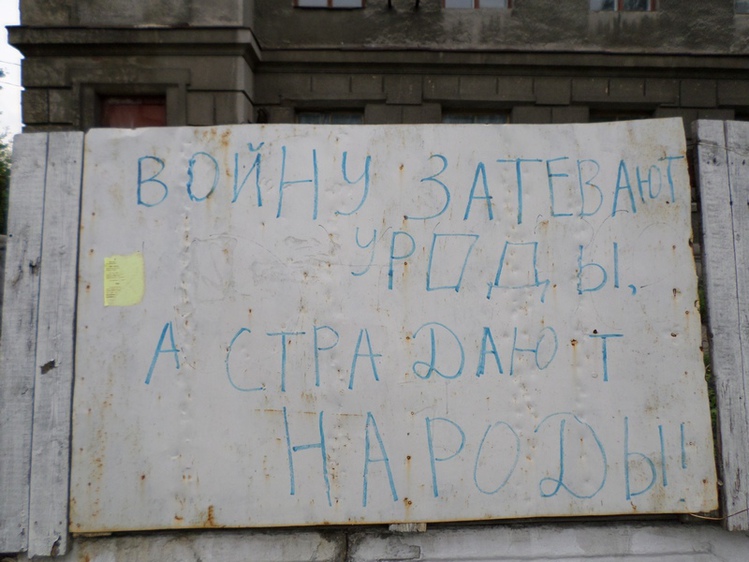 ВОЙНУ ЗАТЕВАЮТ
УРОДЫ,
А СТРАДАЮТ
НАРОДЫ"